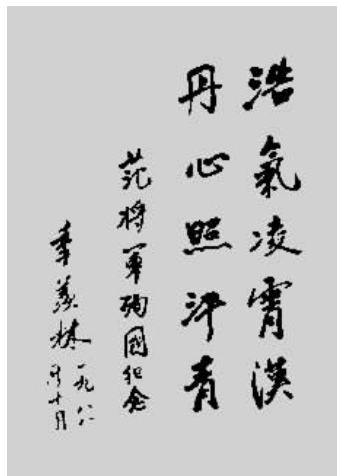 浩氣凌霄漢
丹心照汗青
范將軍殉國紀念
季羨林
一九八八
年十月